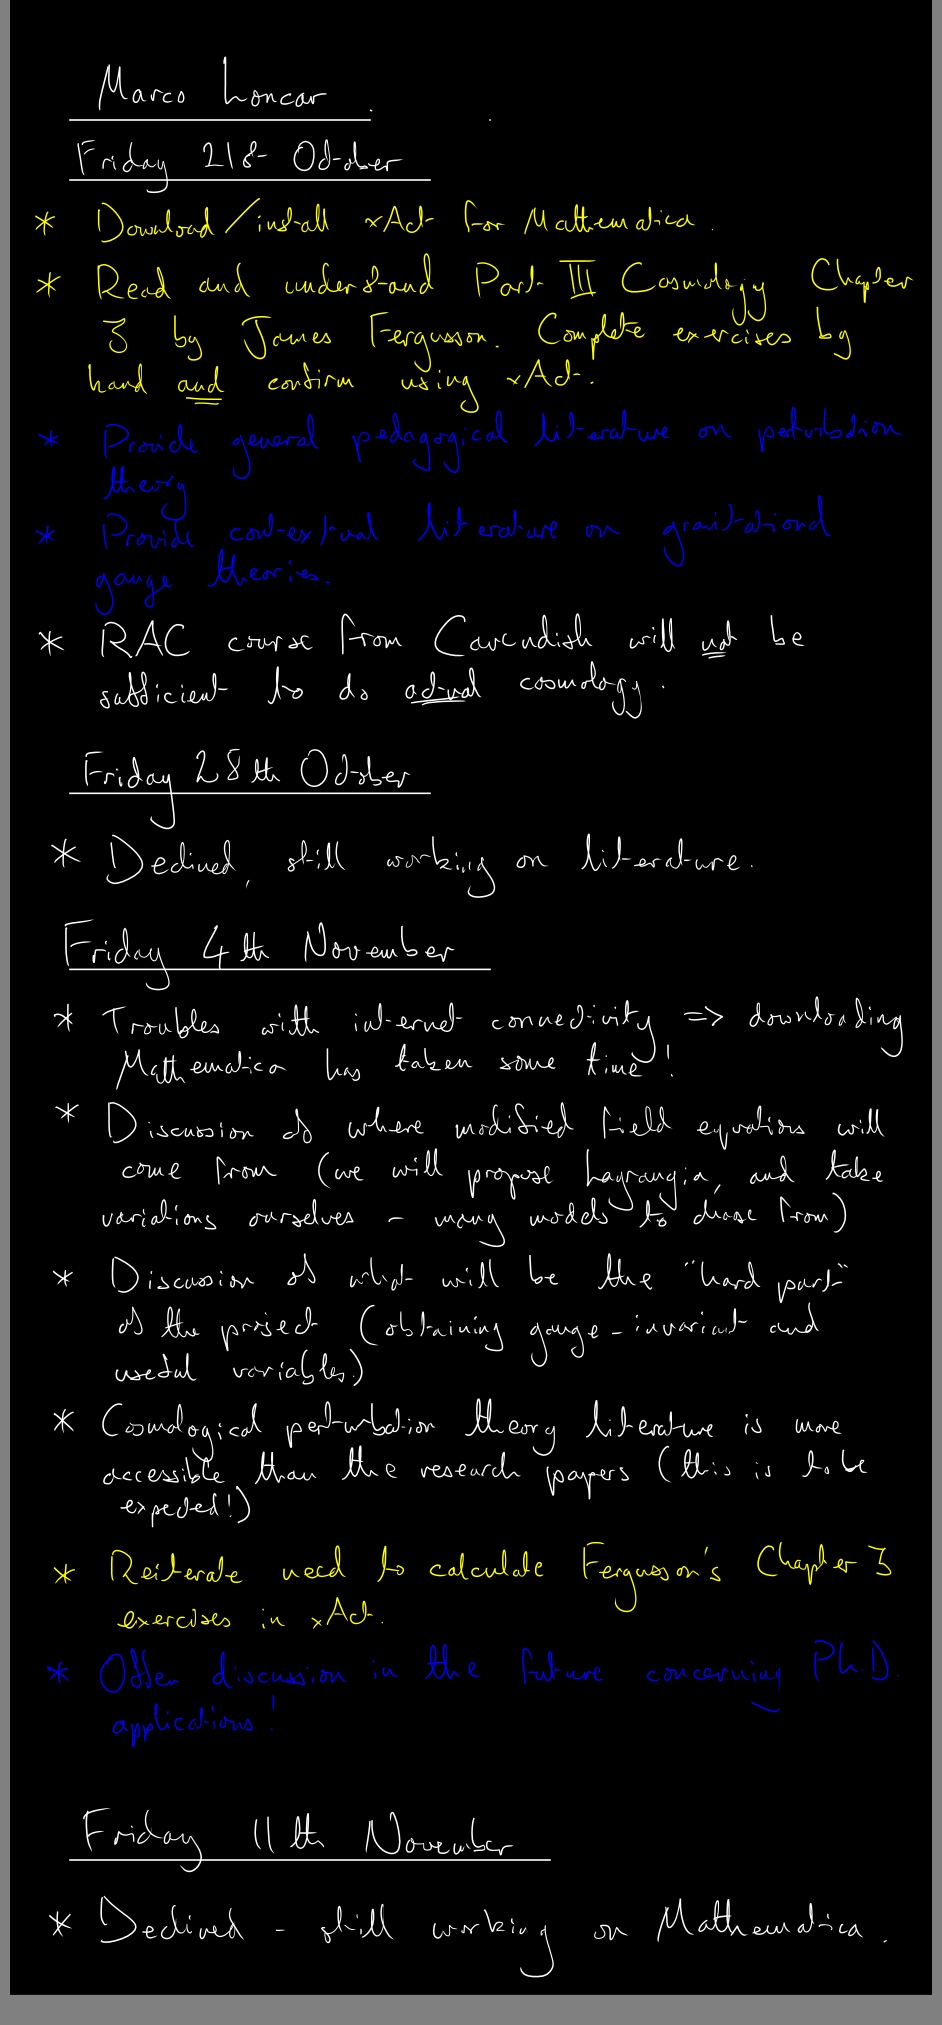 Marco Loncar
Friday 21st October
* Download/install xAct for Mathematica.
* Read and understand Part III Cosmology Chapter
3 by James Fergusson. Complete exercises by
hand and confirm using xAct.
* Provide general pedagogical literature on perturbation
theory
* Provide contextual literature on gravitational
gauge theories.
* RAC course from Cavendish will not be
sufficient to do actual cosmology.
Friday 28th October
* Declined, still working on literature.
Friday 4th November
* Troubles with internet connectivity => downloading
Mathematica has taken some time!
* Discussion of where modified field equations will
come from (we will propose Lagrangia, and take
variations ourselves - many models to choose from)
* Discussion of what will be the "hard part"
of the project (obtaining gauge-invariant and
useful variables.)
* Cosmological perturbation theory literature is more
accessible than the research papers (this is to be
expected!)
* Reiterate need to calculate Fergusson's Chapter 3
exercises in xAct.
* Offer discussion in the future concerning Ph.D.
applications!
Friday 11th November
* Declined - still working on Mathematica.